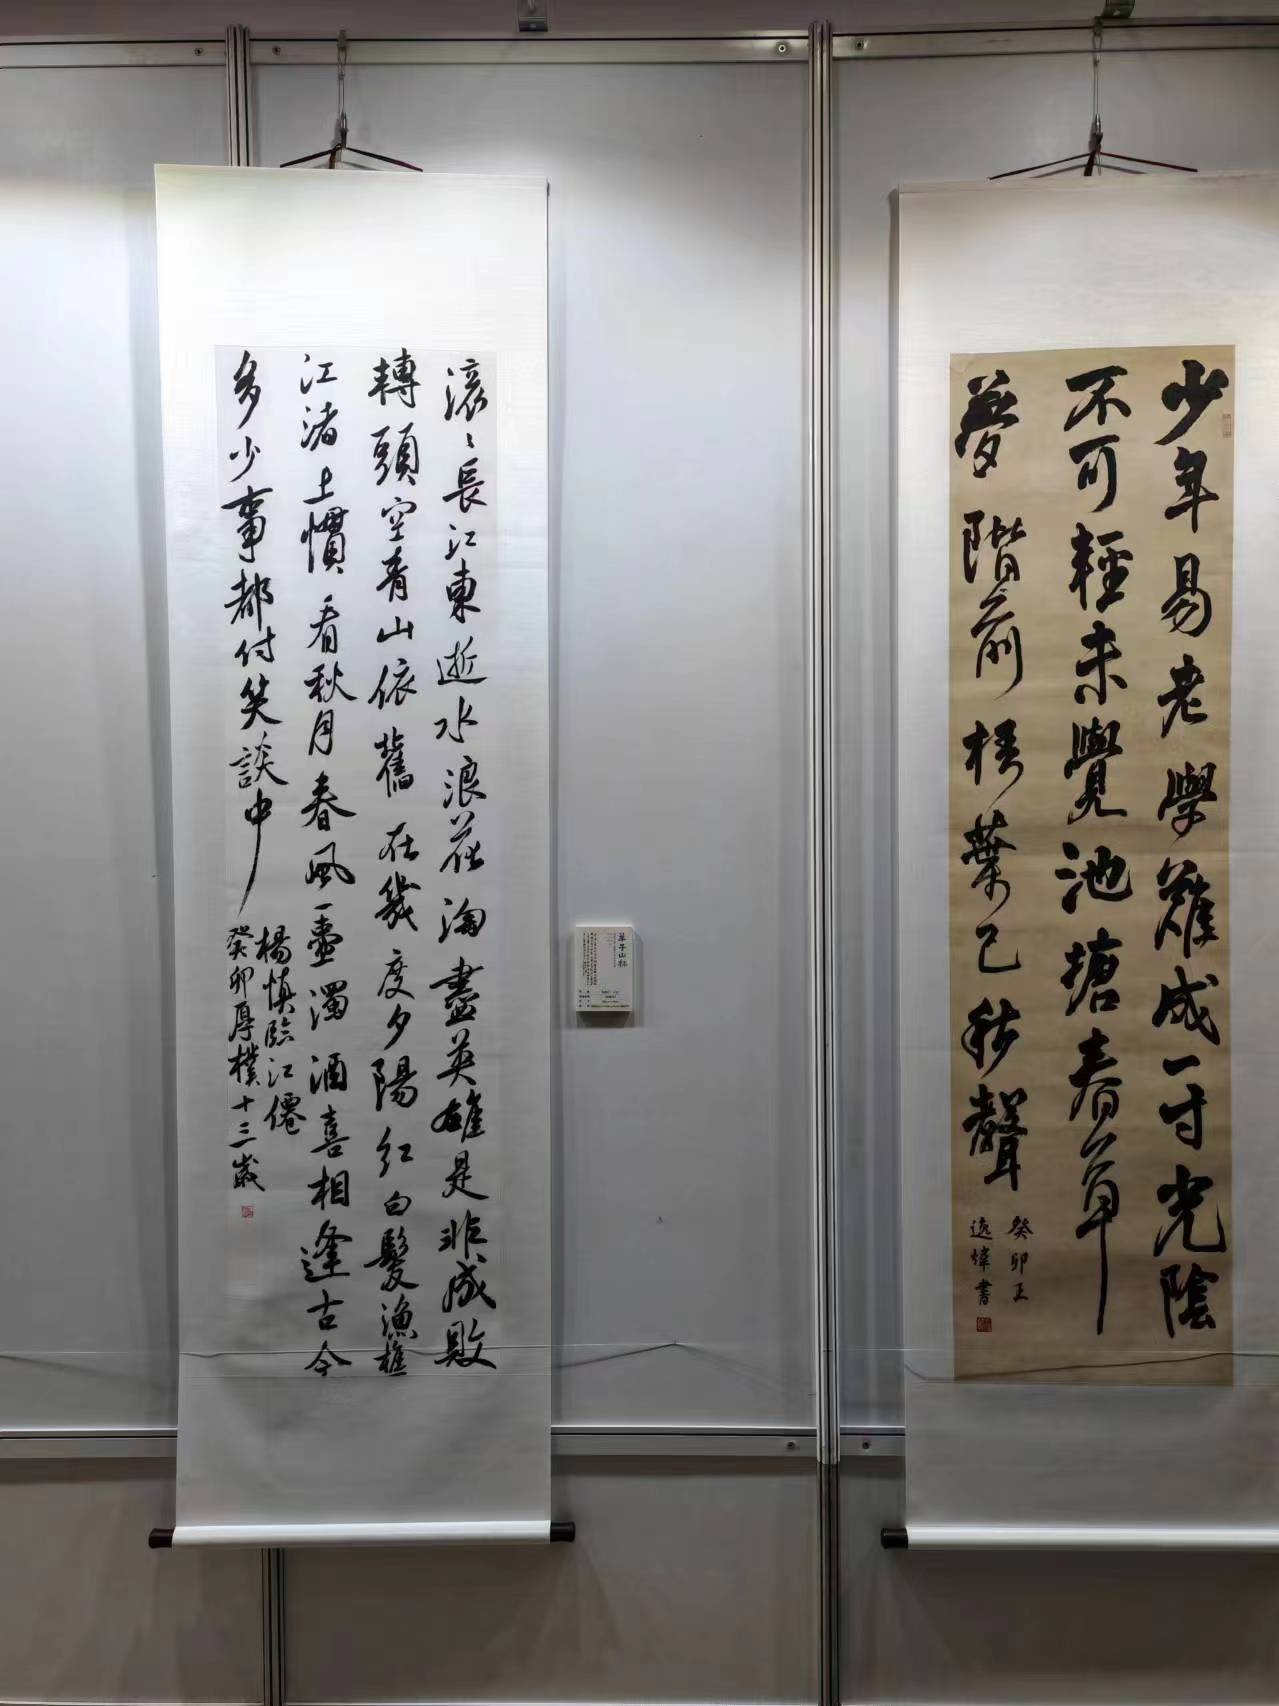 少年易老學難成一寸光陰
不可輕未覺池塘春草
夢階前梧葉已秋聲
癸卯王
逸煒書
滚〻長江東逝水浪花淘盡英雄是非成敗
轉頭空青山依舊在幾度夕陽紅白髮漁樵
江渚上慣看秋月春風一壺濁酒喜相逢古今
多少事都付笑談中
楊慎臨江僊
癸卯厚樸十三歲